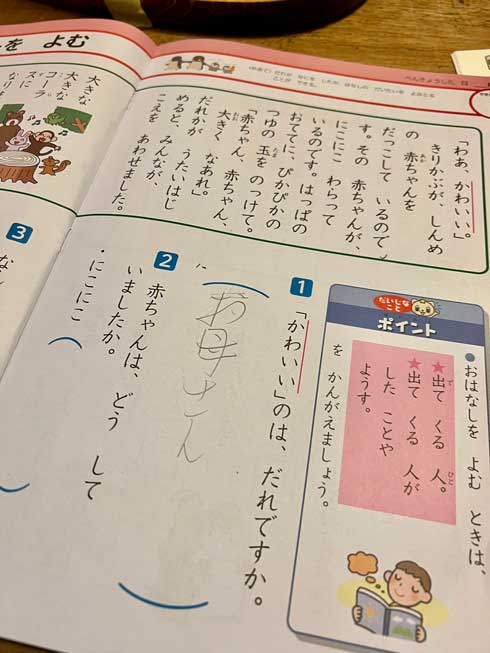 を よむ
べんきょうした 日
ことが できる。
「わあ、かわいい。」
きりかぶが、しんめ
の 赤ちゃんを
だっこして いるので
す。その 赤ちゃんが、
にこにこ わらって
いるのです。はっぱの
おててに、ぴかぴかの
つゆの 玉を のっけて。
「赤ちゃん、赤ちゃん、
大きく なあれ。」
だれかが うたいはじ
めると、みんなが、
こえを あわせました。
大きな
大きな
コーラ
スに
なり
だいじな
こと
ポイント
●おはなしを よむ ときは、
★出て くる 人。
★出て くる 人が
した ことや
ようす。
を かんがえましょう。
1
「かわいい」のは、だれですか。
お母さん
2
赤ちゃんは、どう して
いましたか。
・にこにこ
3